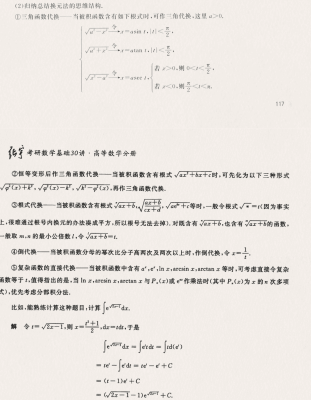 (2)归纳总结换元法的思维结构.
①三角函数代换——当被积函数含有如下根式时,可作三角代换,这里 a>0.
√(a²-x²) 令→ x=asin t, |t|<π/2,
√(a²+x²) 令→ x=atan t, |t|<π/2,
√(x²-a²) 令→ x=asec t, {若 x>0,则 0<t<π/2,
若 x<0,则 π/2<t<π.
117
张宇考研数学基础30讲·高等数学分册
②恒等变形后作三角函数代换——当被积函数含有根式 √(ax²+bx+c)时,可先化为以下三种形式
√(φ²(x)+k²), √(φ²(x)-k²), √(k²-φ²(x)),再作三角函数代换.
③根式代换——当被积函数含有根式 ⁿ√(ax+b), √((ax+b)/(cx+d)), √(aeᵇˣ+c)等时,一般令根式√*=t(因为事实
上,很难通过根号内换元的办法凑成平方,所以根号无法去掉).对既含有 ⁿ√(ax+b),也含有 ᵐ√(ax+b)的函数,
一般取 m,n 的最小公倍数 l,令 ˡ√(ax+b)=t.
④倒代换——当被积函数分母的幂次比分子高两次及两次以上时,作倒代换,令 x=1/t.
⑤复杂函数的直接代换——当被积函数中含有 aˣ,eˣ,ln x,arcsin x,arctan x 等时,可考虑直接令复杂
函数等于 t,值得指出的是,当 ln x,arcsin x,arctan x 与 Pₙ(x)或 eᵃˣ作乘法时(其中 Pₙ(x)为 x 的 n 次多项
式),优先考虑分部积分法.
比如,能熟练计算这种题目:计算∫e^√(2x-1)dx.
解 令 t=√(2x-1),则 x=(t²+1)/2,dx=tdt,于是
∫e^√(2x-1)dx=∫eᵗtdt=∫td(eᵗ)
=teᵗ-∫eᵗdt=teᵗ-eᵗ+C
=(t-1)eᵗ+C
=(√(2x-1)-1)e^√(2x-1)+C.